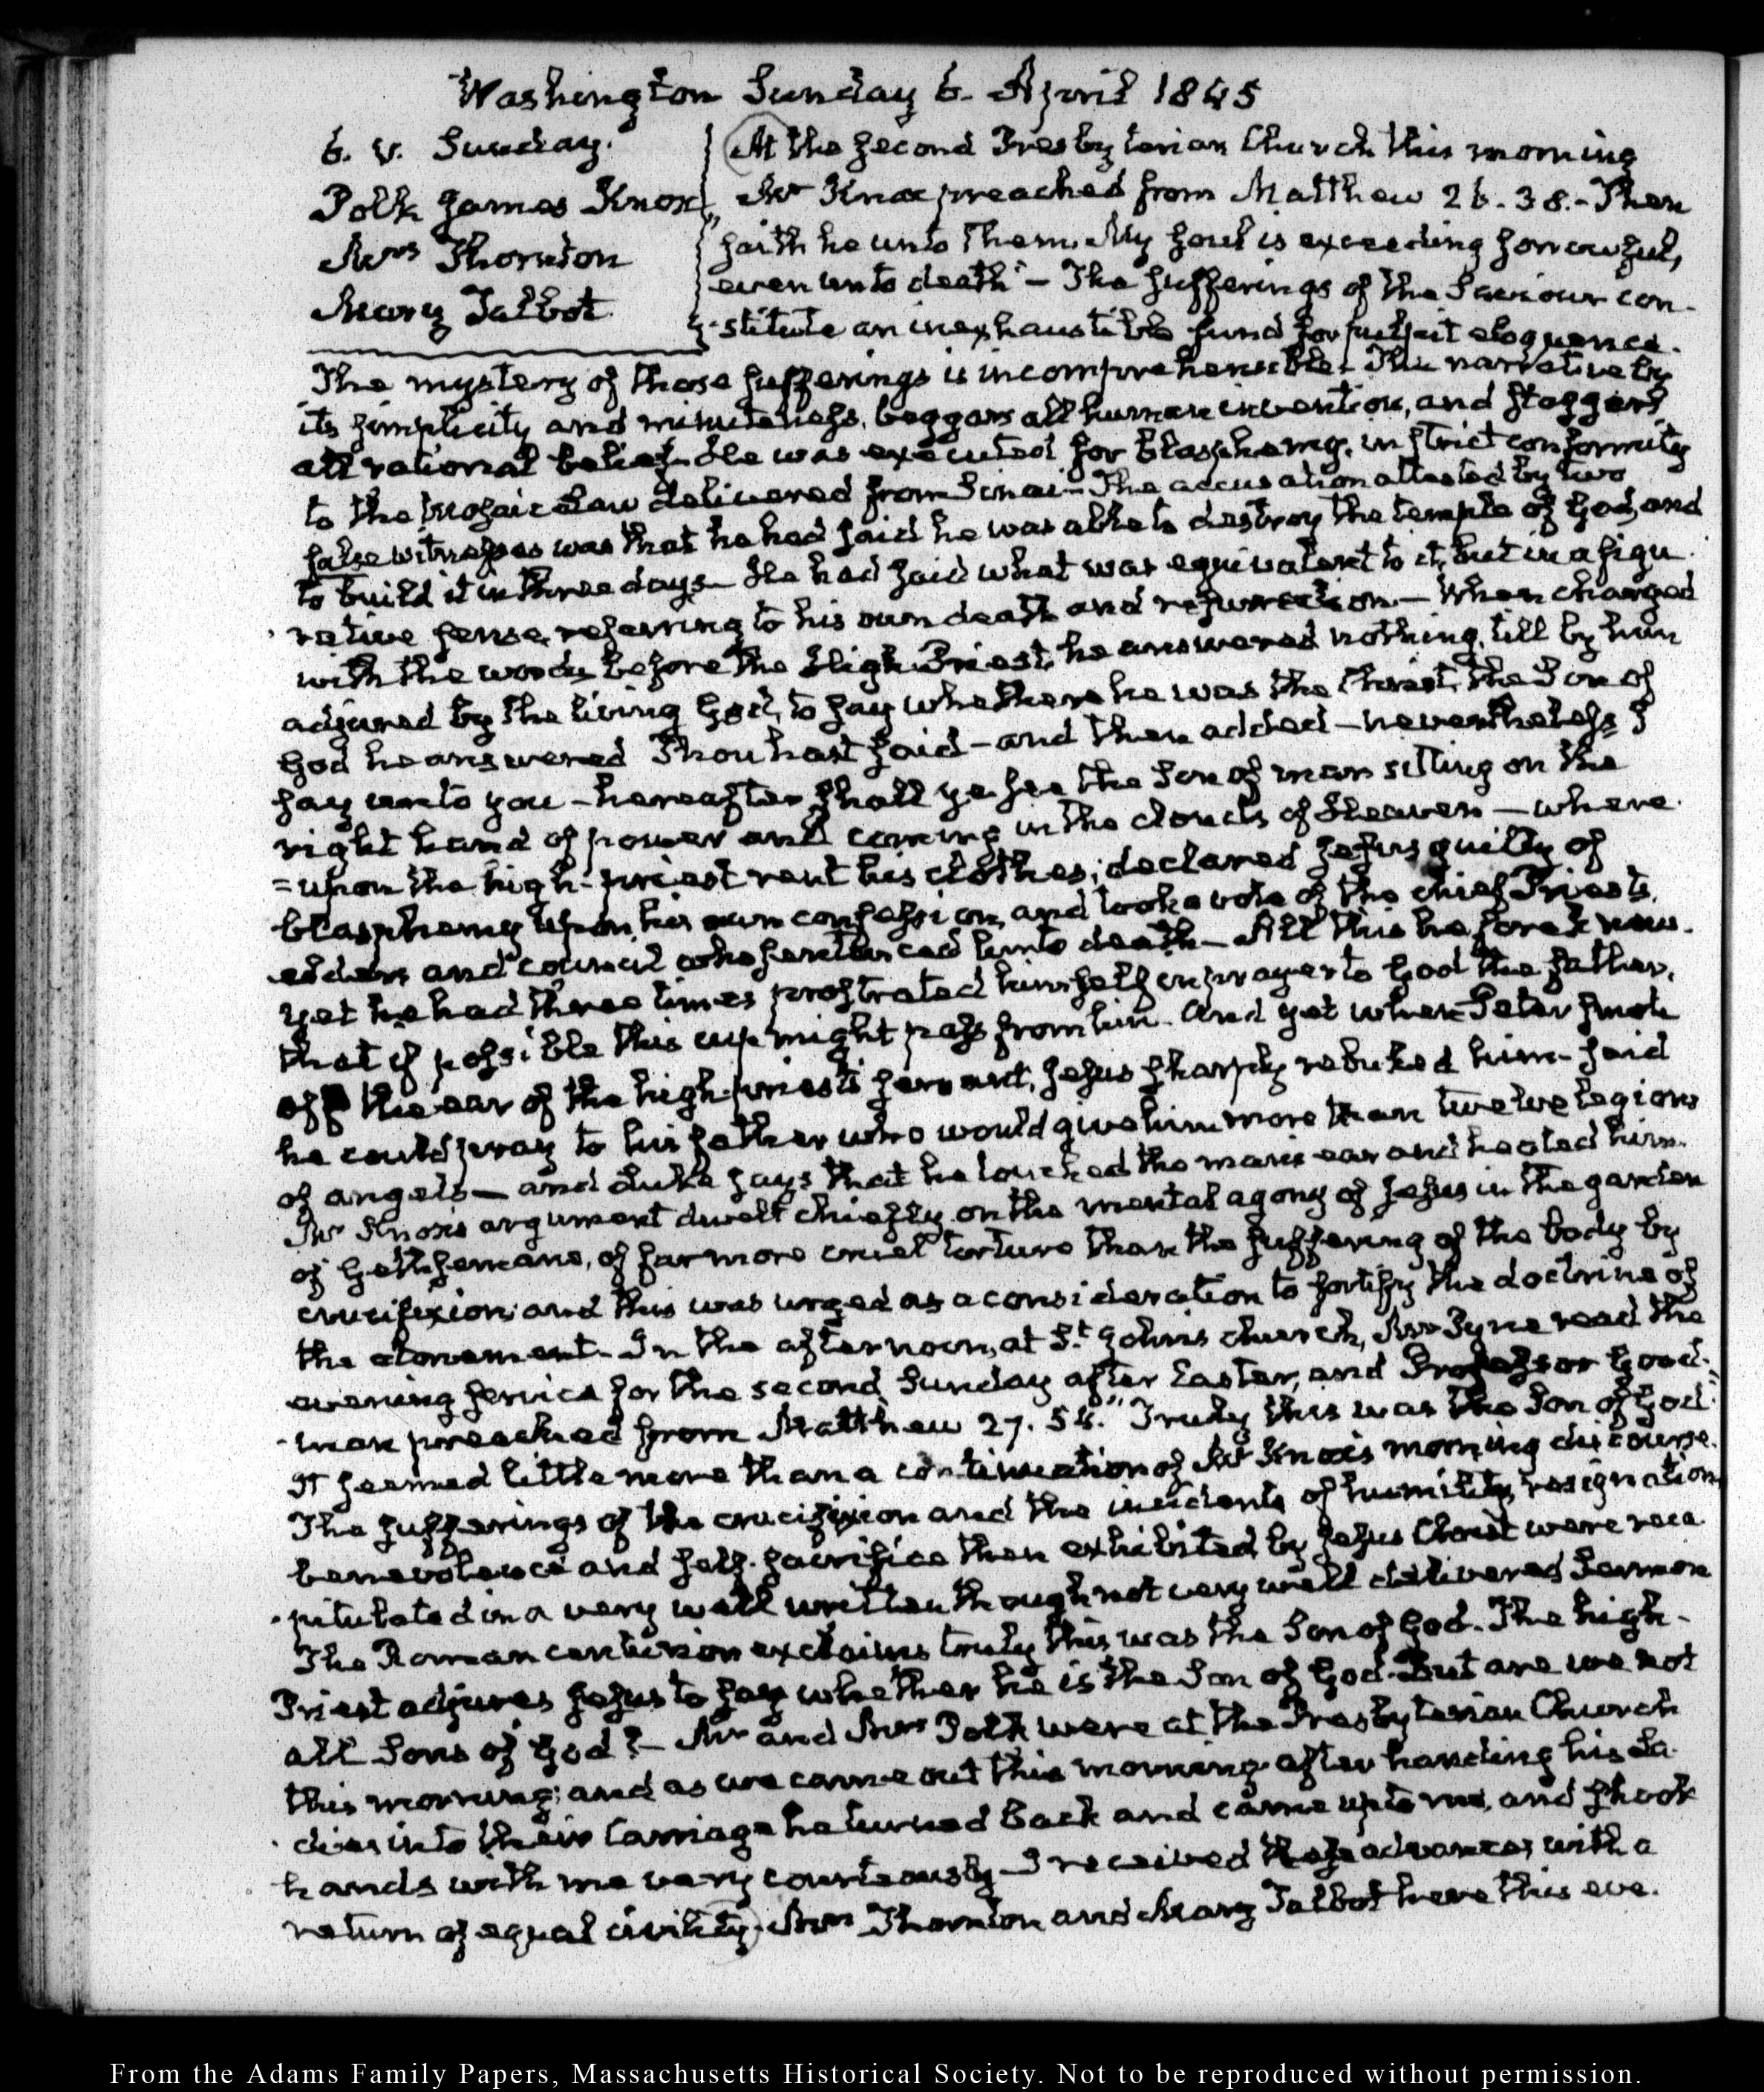 Washington Sunday 6. April 1845
6. V. Sunday.
Polk James Knox
Mrs Thornton
Mary Talbot
At the second Presbyterian Church this morning
Mr Knox preached from Matthew 26. 38.- "Then
saith he unto them. My soul is exceeding sorrowful,
even unto death" – The sufferings of the Saviour con-
-stitute an inexhaustible fund for pulpit eloquence.
The mystery of those sufferings is incomprehensible. The narrative by
its simplicity and minuteness, beggars all human invention, and staggers
all rational belief. He was executed for blasphemy, in strict conformity
to the Mosaic Law delivered from Sinai – The accusation attested by two
false witnesses was that he had said he was able to destroy the temple of God, and
to build it in three days – He had said what was equivalent to it, but in a figu
-rative sense, referring to his own death and resurrection. – When charged
with the words before the High-Priest, he answered nothing, till by him
adjured by the living God, to say whether he was the Christ, the Son of
God he answered Thou hast said – and then added – nevertheless I
say unto you – hereafter shall ye see the Son of man sitting on the
right hand of power and coming in the clouds of Heaven – where
=upon the high-priest rent his clothes; declared Jesus guilty of
blasphemy upon his own confession, and took a vote of the chief Priests,
elders and council who sentenced him to death – All this he foreknew.
yet he had three times prostrated himself in prayer to God the father,
that if possible this cup might pass from him. And yet when Peter smote
off the ear of the high-priest's servant, Jesus sharply rebuked him – said
he could pray to his father who would give him more than twelve legions
of angels – and Luke says that he touched the man's ear and healed him.
Mr Knox's argument dwelt chiefly on the mental agony of Jesus in the garden
of Gethsemane, of far more cruel torture than the suffering of the body by
crucifixion; and this was urged as a consideration to fortify the doctrine of
the atonement. In the afternoon, at St. John's church, Mr Pyne read the
evening service for the second Sunday after Easter, and Professor Good-
-man preached from Matthew 27. 54. "Truly this was the Son of God."
It seemed little more than a continuation of Mr Knox's morning discourse.
The sufferings of the crucifixion and the incidents of humility, resignation
benevolence and self-sacrifice then exhibited by Jesus Christ were reca
-pitulated in a very well written though not very well delivered Sermon
The Roman centurion exclaims truly this was the Son of God. The high-
Priest adjures Jesus to say whether he is the Son of God. But are we not
all Sons of God? – Mr and Mrs Polk were at the Presbyterian Church
this morning; and as we came out this morning after handing his La-
-dies into their Carriage he turned back and came up to me, and shook
hands with me very courteously – I received these advances with a
return of equal civility. Mrs Thornton and Mary Talbot here this eve.
From the Adams Family Papers, Massachusetts Historical Society. Not to be reproduced without permission.